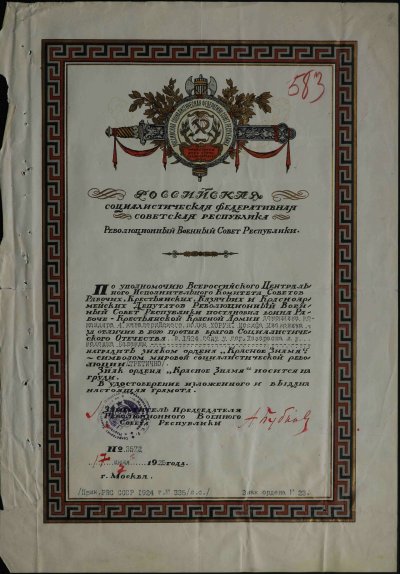 583
РОССИЙСКАЯ
СОЦИАЛИСТИЧЕСКАЯ ФЕДЕРАТИВНАЯ
СОВЕТСКАЯ РЕСПУБЛИКА
Революционный Военный Совет Республики.
По уполномочию Всероссийского Централь-
ного Исполнительного Комитета Советов
Рабочих, Крестьянских, Казачьих и Красноар-
мейских Депутатов Революционный Воен-
ный Совет Республики постановил воина Ра-
боче-Крестьянской Красной Армии
за отличие в бою против врагов Социалистиче-
ского Отечества в 1924 году
наградить знаком ордена „Красное Знамя"
— символом мировой социалистической рево-
люции
Знак ордена „Красное Знамя" носится на
груди.
В удостоверение изложенного и выдана
настоящая грамота.
Заместитель Председателя
Революционного Военного
Совета Республики
А Бубнов
№
17 года.
г. Москва.
/Прик. РВС СССР 1924 г. № 335/с.с./ Знак ордена № 23.